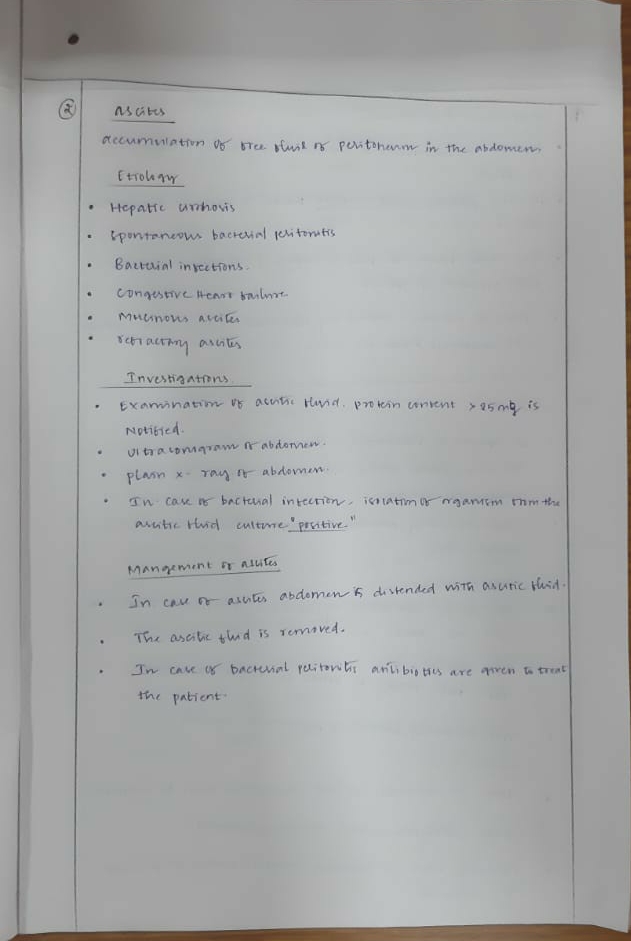 2
Ascites
accumulation of free fluid of peritoneum in the abdomen.
Etiology
• Hepatic cirrhosis
• Spontaneous bacterial peritonitis
• Bacterial infections.
• Congestive Heart failure
• Mucinous ascites
• refractory ascites
Investigations
• Examination of ascitic fluid. protein content > 25mg is
Notified.
• Ultrasonogram of abdomen.
• plain x-ray of abdomen.
• In case of bacterial infection, isolation of organism from the
ascitic fluid culture "positive."
Mangement of ascites
• In case of ascites abdomen is distended with ascitic fluid.
• The ascitic fluid is removed.
• In case of bacterial peritonitis antibiotics are given to treat
the patient.